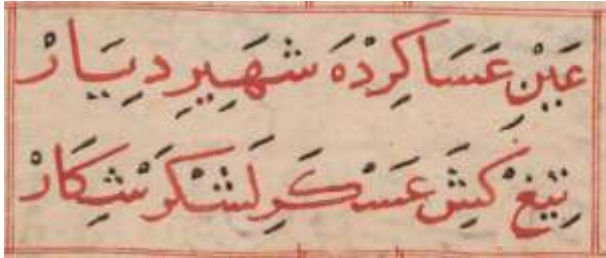 عَيْنِ عَسَاكِرْدَه شَهِيرِ دِيَارْ
تِيغْ كَشِ عَسْكَرِ لَشْكَرْ شِكَارْ